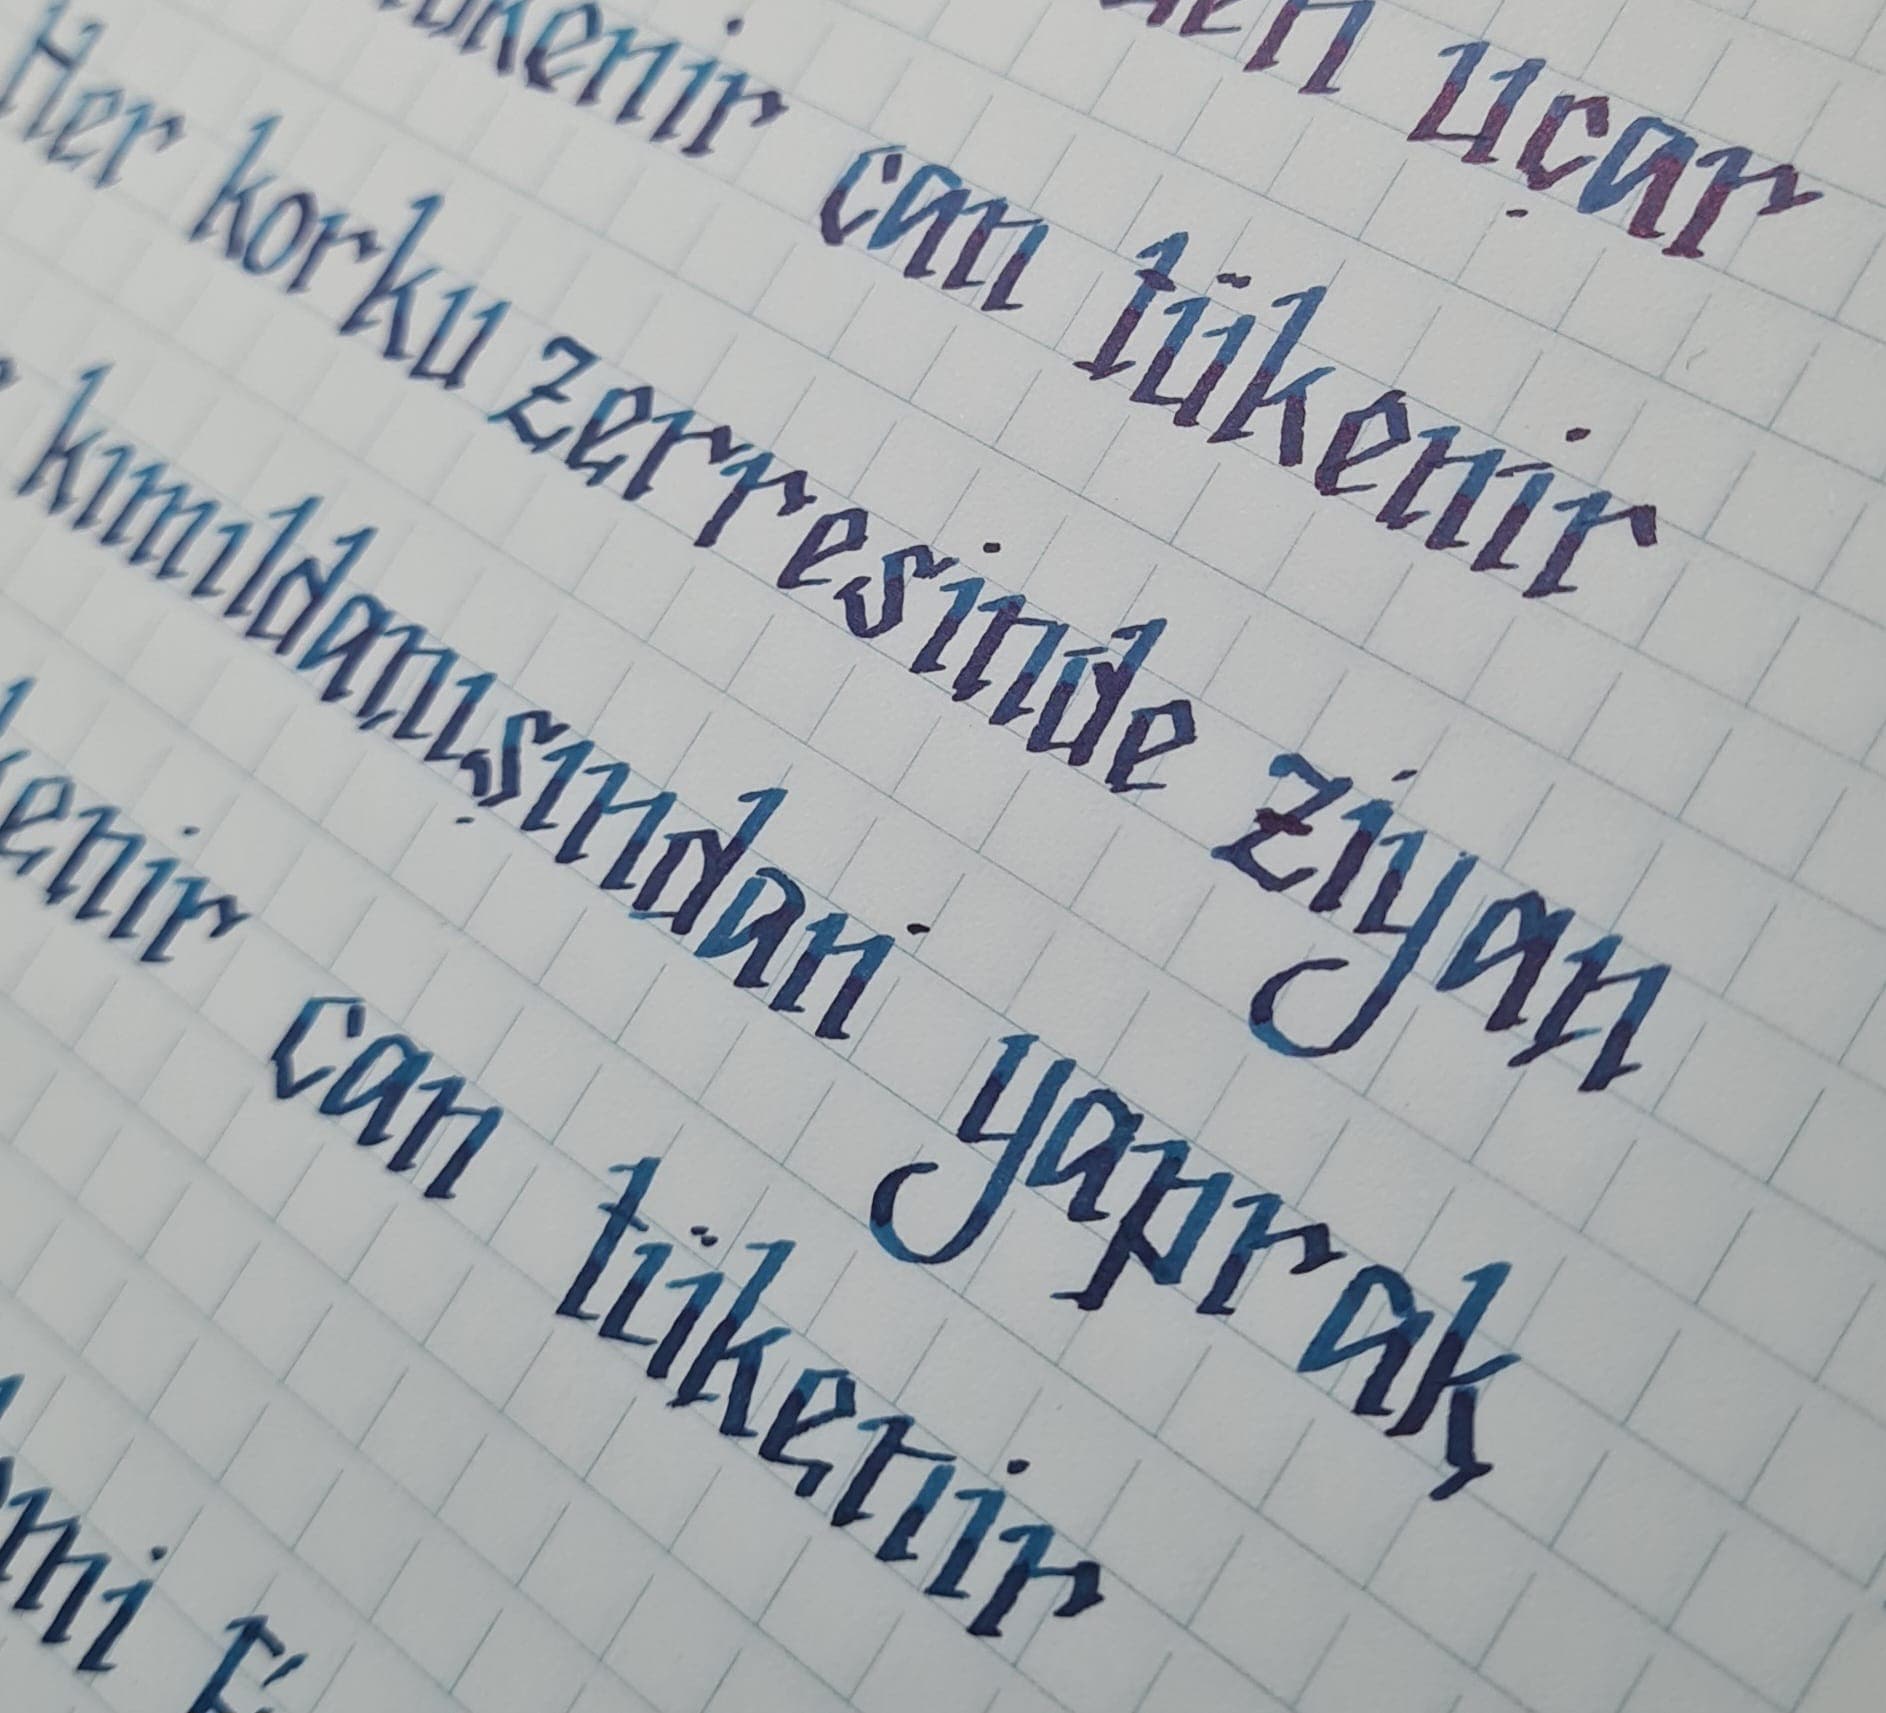 uçar
tükenir can tükenir
Her korku zerresinde ziyan
kımıldanışından yaprak
can tükenir